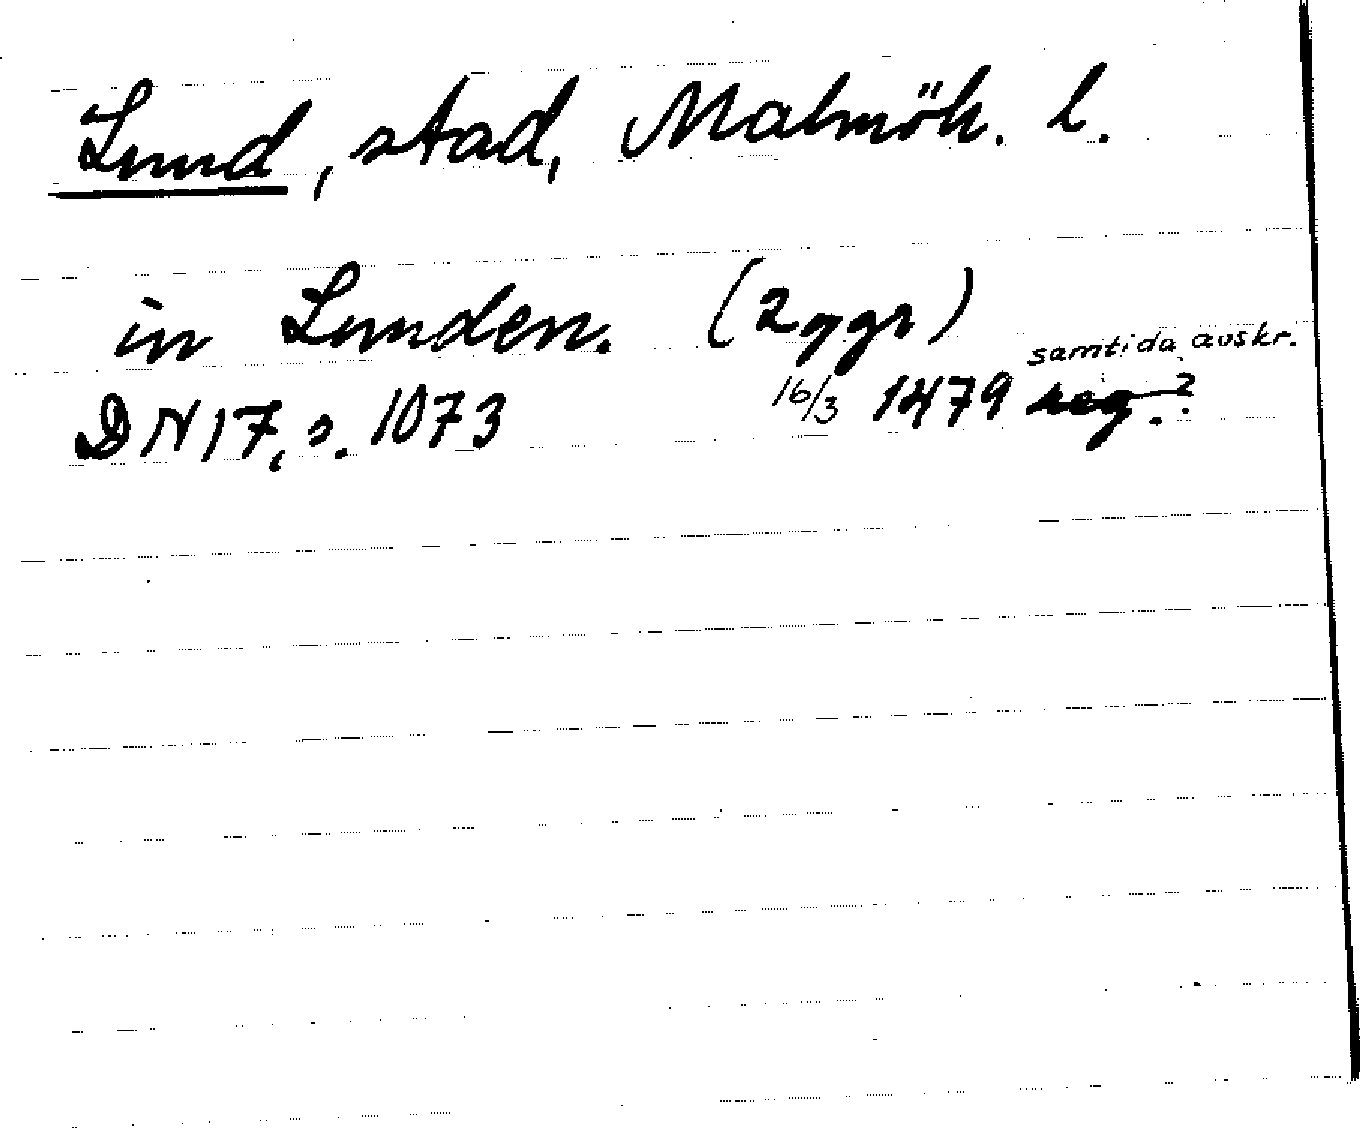 Lund, stad, Malmöh. l.
in Lunden. (2 ggr)
samtida avskr.
DN 17, s. 1073 16/3 1479 reg.?